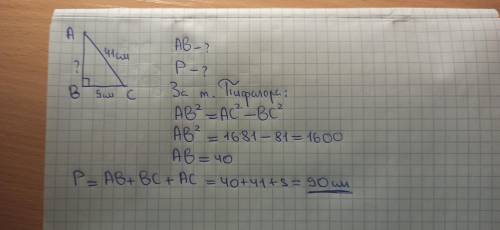 A
41см
?
B 9см C
AB - ?
P - ?
За т. Піфагора:
AB² = AC² - BC²
AB² = 1681 - 81 = 1600
AB = 40
P = AB + BC + AC = 40 + 41 + 9 = 90 см